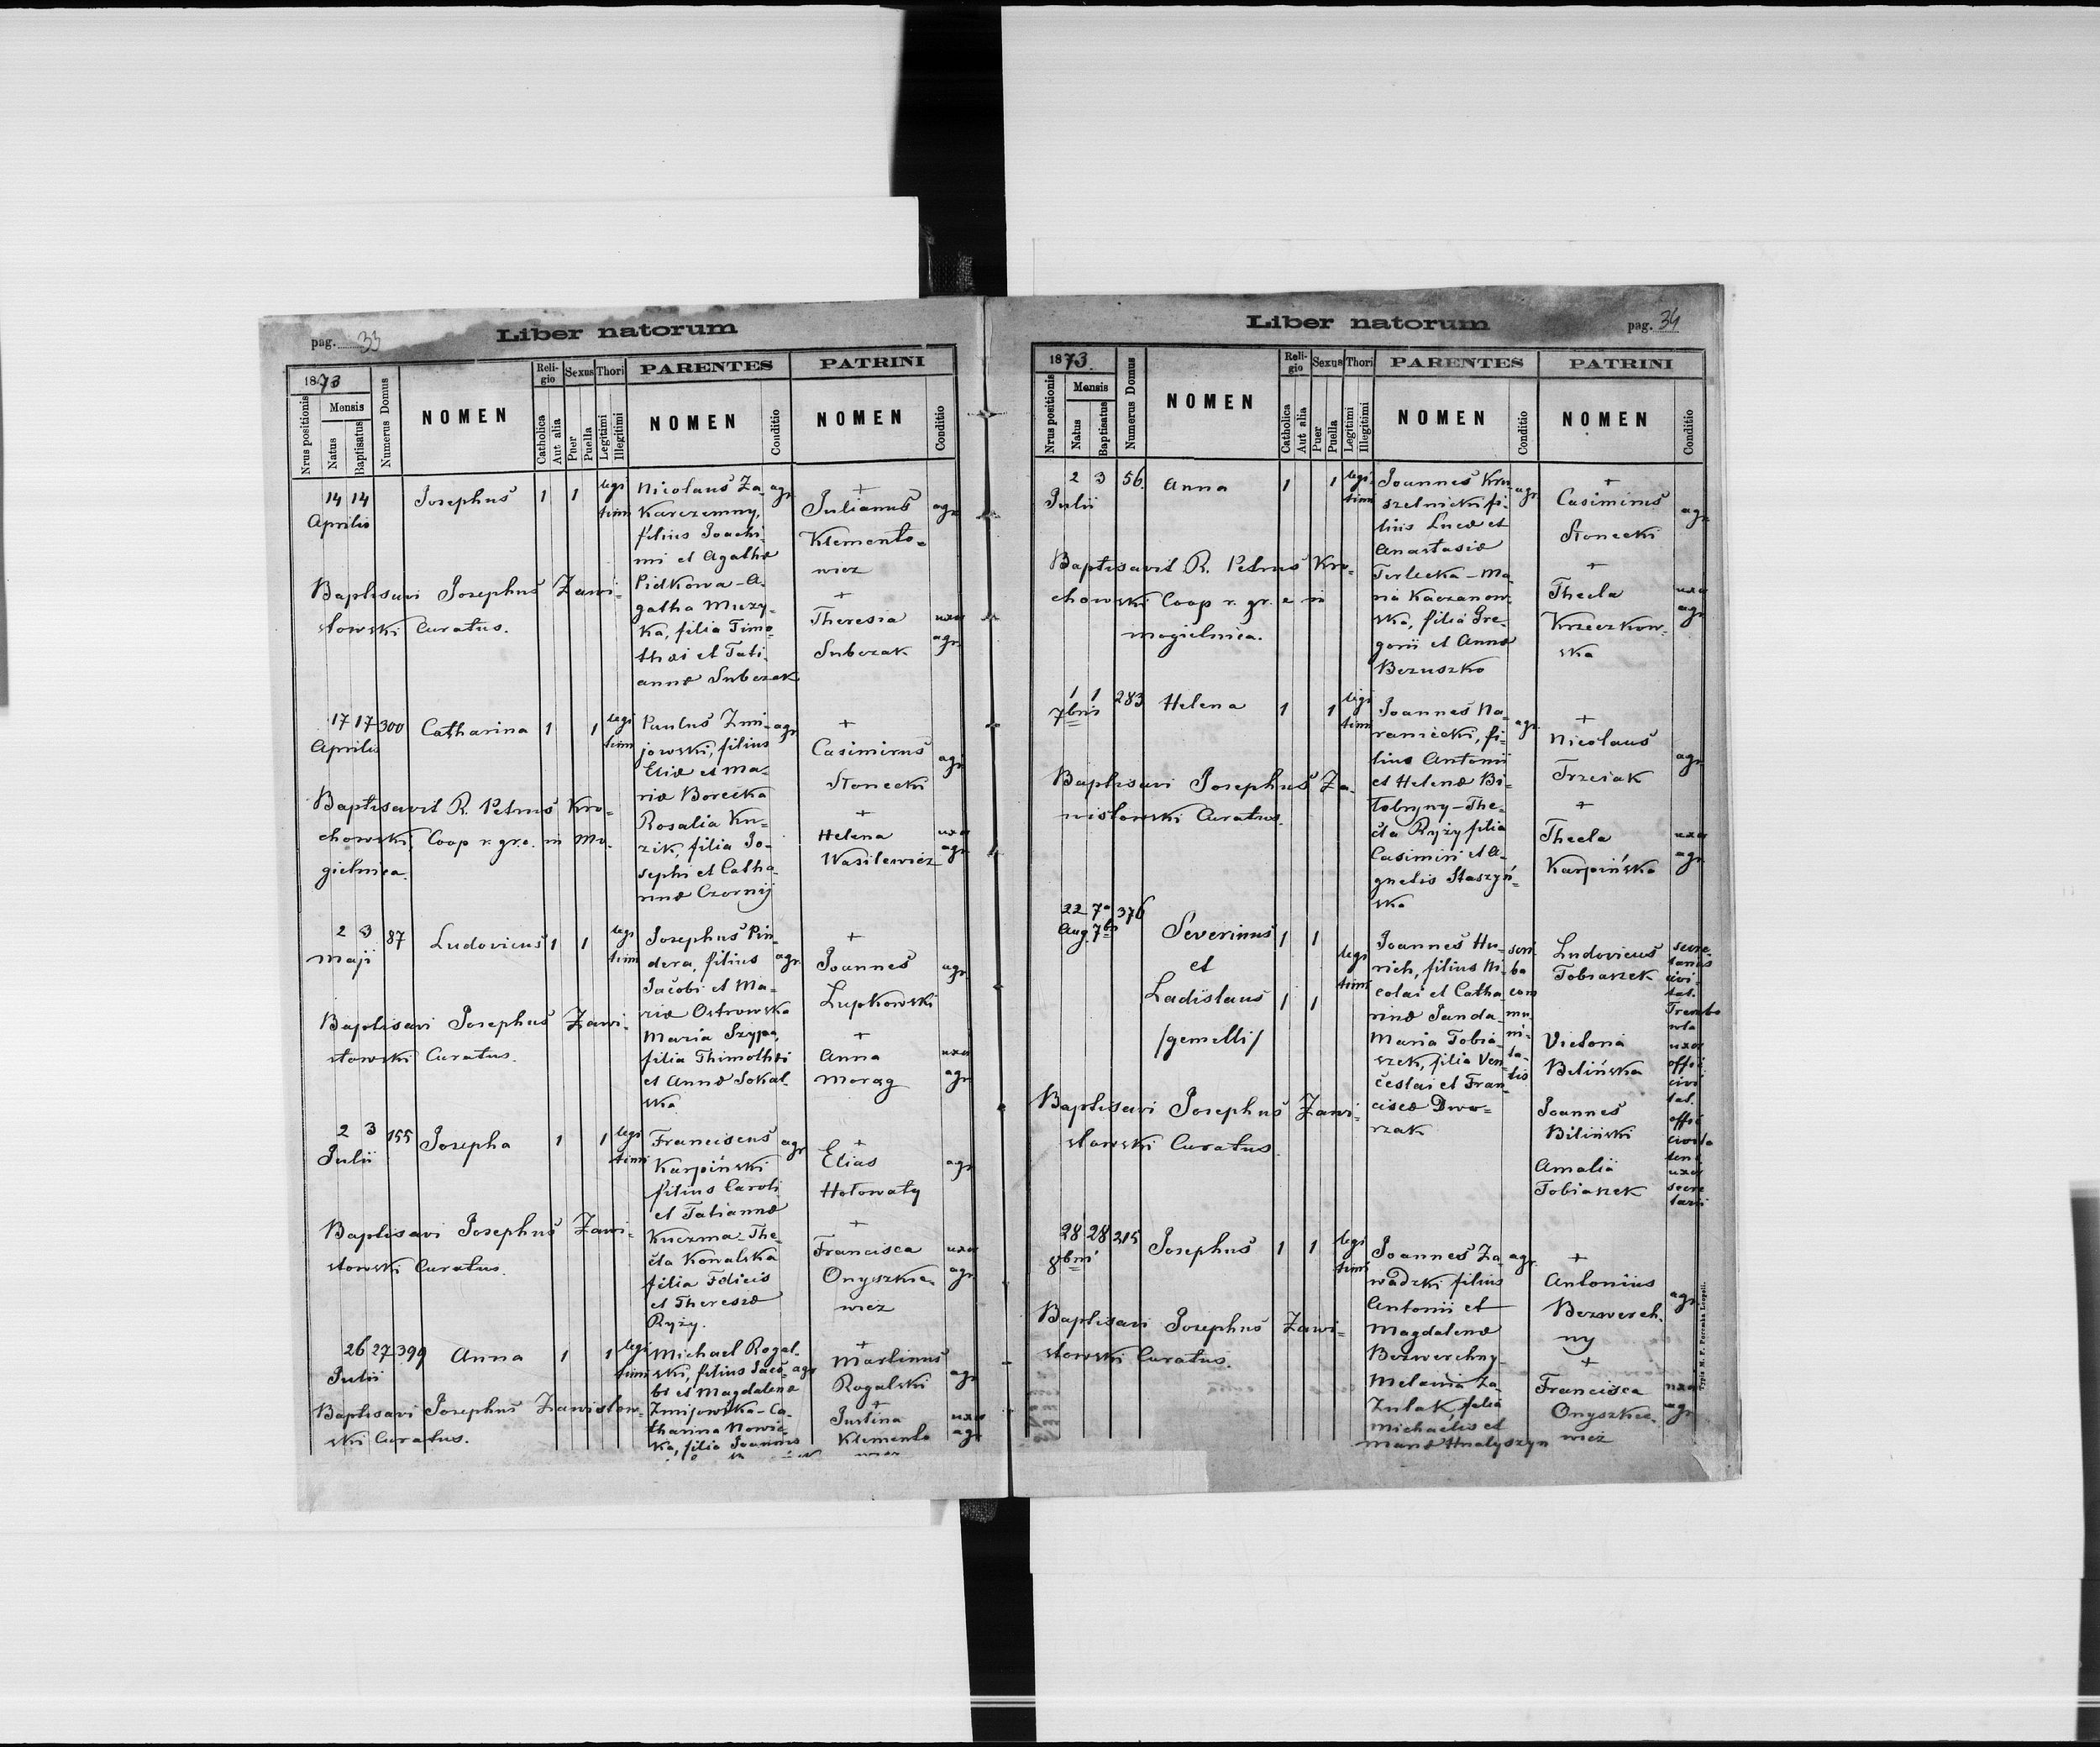 pag. 33
Liber natorum
1873
Nrus positionis
Mensis
Natus
Baptisatus
Numerus Domus
NOMEN
Religio
Catholica
Aut alia
Sexus
Puer
Puella
Thori
Legitimi
Illegitimi
PARENTES
NOMEN
Conditio
PATRINI
NOMEN
Conditio
14 14
Aprilis
Josephus
1 1
legi
timi
Nicolaus Za-
karczemny,
filius Joachi-
mi et Agathæ
Pidkowa - A-
gatha Muzy-
ka, filia Timo-
thæi et Tati-
annæ Subczak
agr.
+
Julianus
Klemento-
wicz
agr.
+
Theresia
Subczak
uxor
agr.
Baptisavi Josephus Zawi-
słowski Curatus.
17 17 300
Aprilis
Catharina
1 1
legi
timi
Paulus Zmi-
jowski, filius
Eliæ et Ma-
riæ Borecka
Rosalia Ku-
zik, filia Jo-
sephi et Catha-
rinæ Czornij
agr.
+
Casimirus
Słonecki
agr.
+
Helena
Wasilewicz
uxor
agr.
Baptisavit R. Petrus Kro-
chowski, Coop r. gr. c. in Mo-
gielnica.
2 3 87
Maji
Ludovicus
1 1
legi
timi
Josephus Pin-
dera, filius
Jacobi et Ma-
riæ Ostrowska
Maria Szypa,
filia Thimothei
et Annæ Sokal-
ska
agr.
+
Joannes
Lupkowski
agr.
+
Anna
Morąg
uxor
agr.
Baptisavi Josephus Zawi-
słowski Curatus.
2 3 155
Julii
Josepha
1 1
legi
timi
Franciscus
Karpiński
filius Caroli
et Tatiannæ
Kuczma - The-
cla Kowalska
filia Felicis
et Theresiæ
Ryzy.
agr.
+
Elias
Hołowaty
agr.
+
Francisca
Onyszkie-
wicz
uxor
agr.
Baptisavi Josephus Zawi-
słowski Curatus.
26 27 399
Julii
Anna
1 1
legi
timi
Michael Rogal-
ski, filius Jaco-
bi et Magdalenæ
Zmijowska - Ca-
tharina Nowic-
ka, filia Joannis
agr.
+
Martinus
Rogalski
agr.
+
Justina
Klemento
wicz
uxor
agr.
Baptisavi Josephus Zawisłow-
ski Curatus.
Liber natorum
pag. 34
1873.
Nrus positionis
Mensis
Natus
Baptisatus
Numerus Domus
NOMEN
Religio
Catholica
Aut alia
Sexus
Puer
Puella
Thori
Legitimi
Illegitimi
PARENTES
NOMEN
Conditio
PATRINI
NOMEN
Conditio
2 3 56.
Julii
Anna
1 1
legi
timi
Joannes Kru-
szelnicki fi-
lius Lucæ et
Anastasiæ
Terlecka - Ma-
ria Kaczanow-
ska, filia Gre-
gorii et Annæ
Bezuszko
agr.
+
Casimirus
Słonecki
agr.
+
Thecla
Krzeczkow-
ska
uxor
agr.
Baptisavit R. Petrus Kro-
chowski Coop r. gr. c in
Mogielnica.
1 1 283
7bris
Helena
1 1
legi
timi
Joannes Na-
ramiecki, fi-
lius Antonii
et Helenæ Bi-
łobryny - The-
cla Ryży filia
Casimiri et A-
gnetis Staszyń-
ska
agr.
+
Nicolaus
Trzeciak
agr.
+
Thecla
Karpińska
uxor
agr.
Baptisavi Josephus Za-
wisłowski Curatus.
22 7a 376
Aug. 7br
Severinus
1 1
et
Ladislaus
1 1
/gemelli/
legi
timi
Joannes Hu-
rich, filius Ni-
colai et Catha-
rinæ Sanda-
Maria Tobia-
szek, filia Ven-
ceslai et Fran-
ciscæ Dwo-
rzak
scri
ba
com
mu
ni-
ta-
tis
Ludovicus
Tobiaszek
secre
tarius
civi-
tat.
Trembo
wla
Victoria
Bilińska
uxor
offi
civi
tat.
Joannes
Biliński
offi
civita
Amalia
Tobiaszek
uxor
secre
tarii
Baptisavi Josephus Zawi-
słowski Curatus.
28 28 215
8bris
Josephus
1 1
legi
timi
Joannes Za-
wadzki filius
Antonii et
Magdalenæ
Bezwerchny -
Melania Za-
Zulak, filia
Michaelis et
Mariæ Hnalyszyn
agr.
+
Antonius
Bezwerch-
ny
agr.
+
Francisca
Onyszkie-
wicz
uxor
agr.
Baptisavi Josephus Zawi-
słowski Curatus.
Typis M. F. Poremba Leopoli.